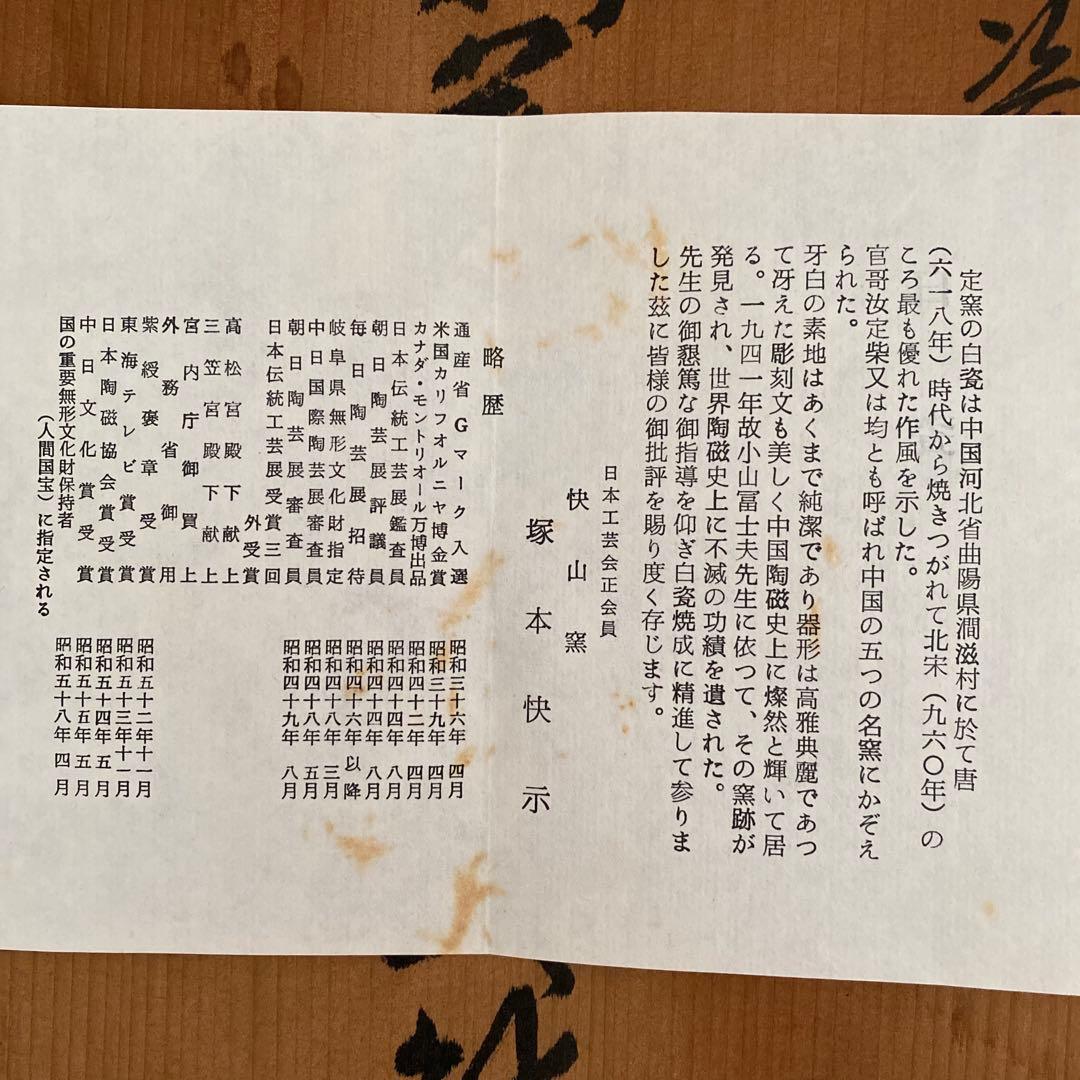 定窯の白瓷は中国河北省曲陽県澗滋村に於て唐
(六一八年)時代から焼きつがれて北宋(九六〇年)の
ころ最も優れた作風を示した。
官哥汝定柴又は均とも呼ばれ中国の五つの名窯にかぞえ
られた。
牙白の素地はあくまで純潔であり器形は高雅典麗であつ
て冴えた彫刻文も美しく中国陶磁史上に燦然と輝いて居
る。一九四一年故小山冨士夫先生に依つて、その窯跡が
発見され、世界陶磁史上に不滅の功績を遺された。
先生の御懇篤な御指導を仰ぎ白瓷焼成に精進して参りま
した茲に皆様の御批評を賜り度く存じます。
日本工芸会正会員
快山窯
塚本快示
略歴
通産省Gマーク入選 昭和三十六年 四月
米国カリフオルニヤ博金賞 昭和三十九年 四月
カナダ・モントリオール万博出品 昭和四十二年 四月
日本伝統工芸展鑑査員 昭和四十四年 八月
朝日陶芸展評議員 昭和四十四年 八月
毎日陶芸展招待 昭和四十六年 以降
岐阜県無形文化財指定 昭和四十八年 三月
中日国際陶芸展審査員 昭和四十八年 五月
朝日陶芸展審査員 昭和四十九年 八月
日本伝統工芸展受賞三回
外受賞
高松宮殿下献上
三笠宮殿下献上
宮内庁御買上
外務省御用
紫綬褒章受賞 昭和五十二年十一月
東海テレビ賞受賞 昭和五十三年十一月
日本陶磁協会賞受賞 昭和五十四年 五月
中日文化賞受賞 昭和五十五年 五月
国の重要無形文化財保持者 昭和五十八年 四月
(人間国宝)に指定される